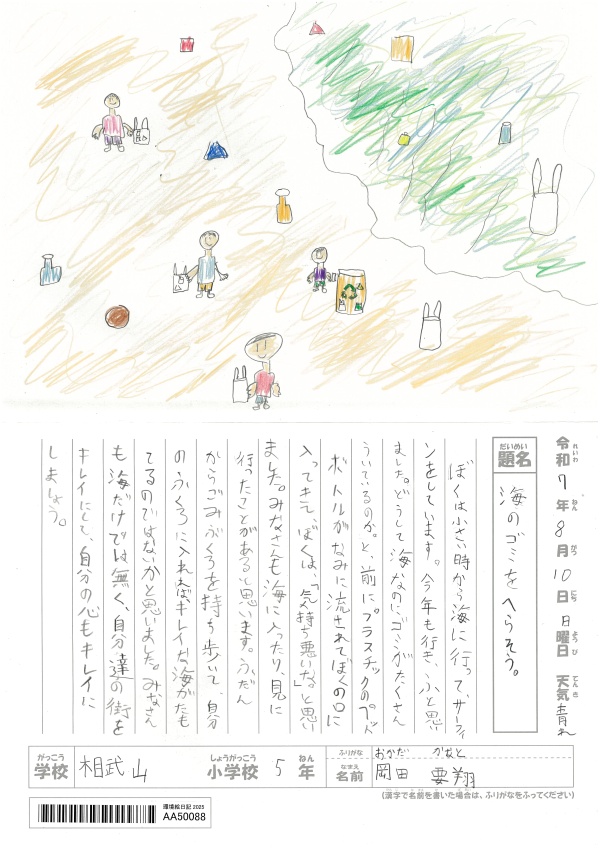 令和7年8月10日日曜日 天気晴れ
れいわ ねん がつ にち ようび てんき
だいめい
題名
海のゴミをへらそう。
ぼくは小さい時から海に行って、サーフィ
ンをしています。今年も行き、ふと思い
ました。どうして海なのにゴミがたくさん
ういているのか。と、前にプラスチックのペット
ボトルがなみに流されてぼくの口に
入ってきて、ぼくは、「気持ち悪いな。」と思い
ました。みなさんも海に入ったり、見に
行ったことがあると思います。ふだん
からごみぶくろを持ち歩いて、自分
のふくろに入れればキレイな海がたも
てるのではないかと思いました。みなさん
も海だけでは無く、自分達の街を
キレイにして、自分の心もキレイに
しましょう。
がっこう
学校
相武山
しょうがっこう
小学校
5
ねん
年
ふりがな
おかだ かなと
なまえ
名前
岡田 要翔
(漢字で名前を書いた場合は、ふりがなをふってください)
環境絵日記 2025
AA50088